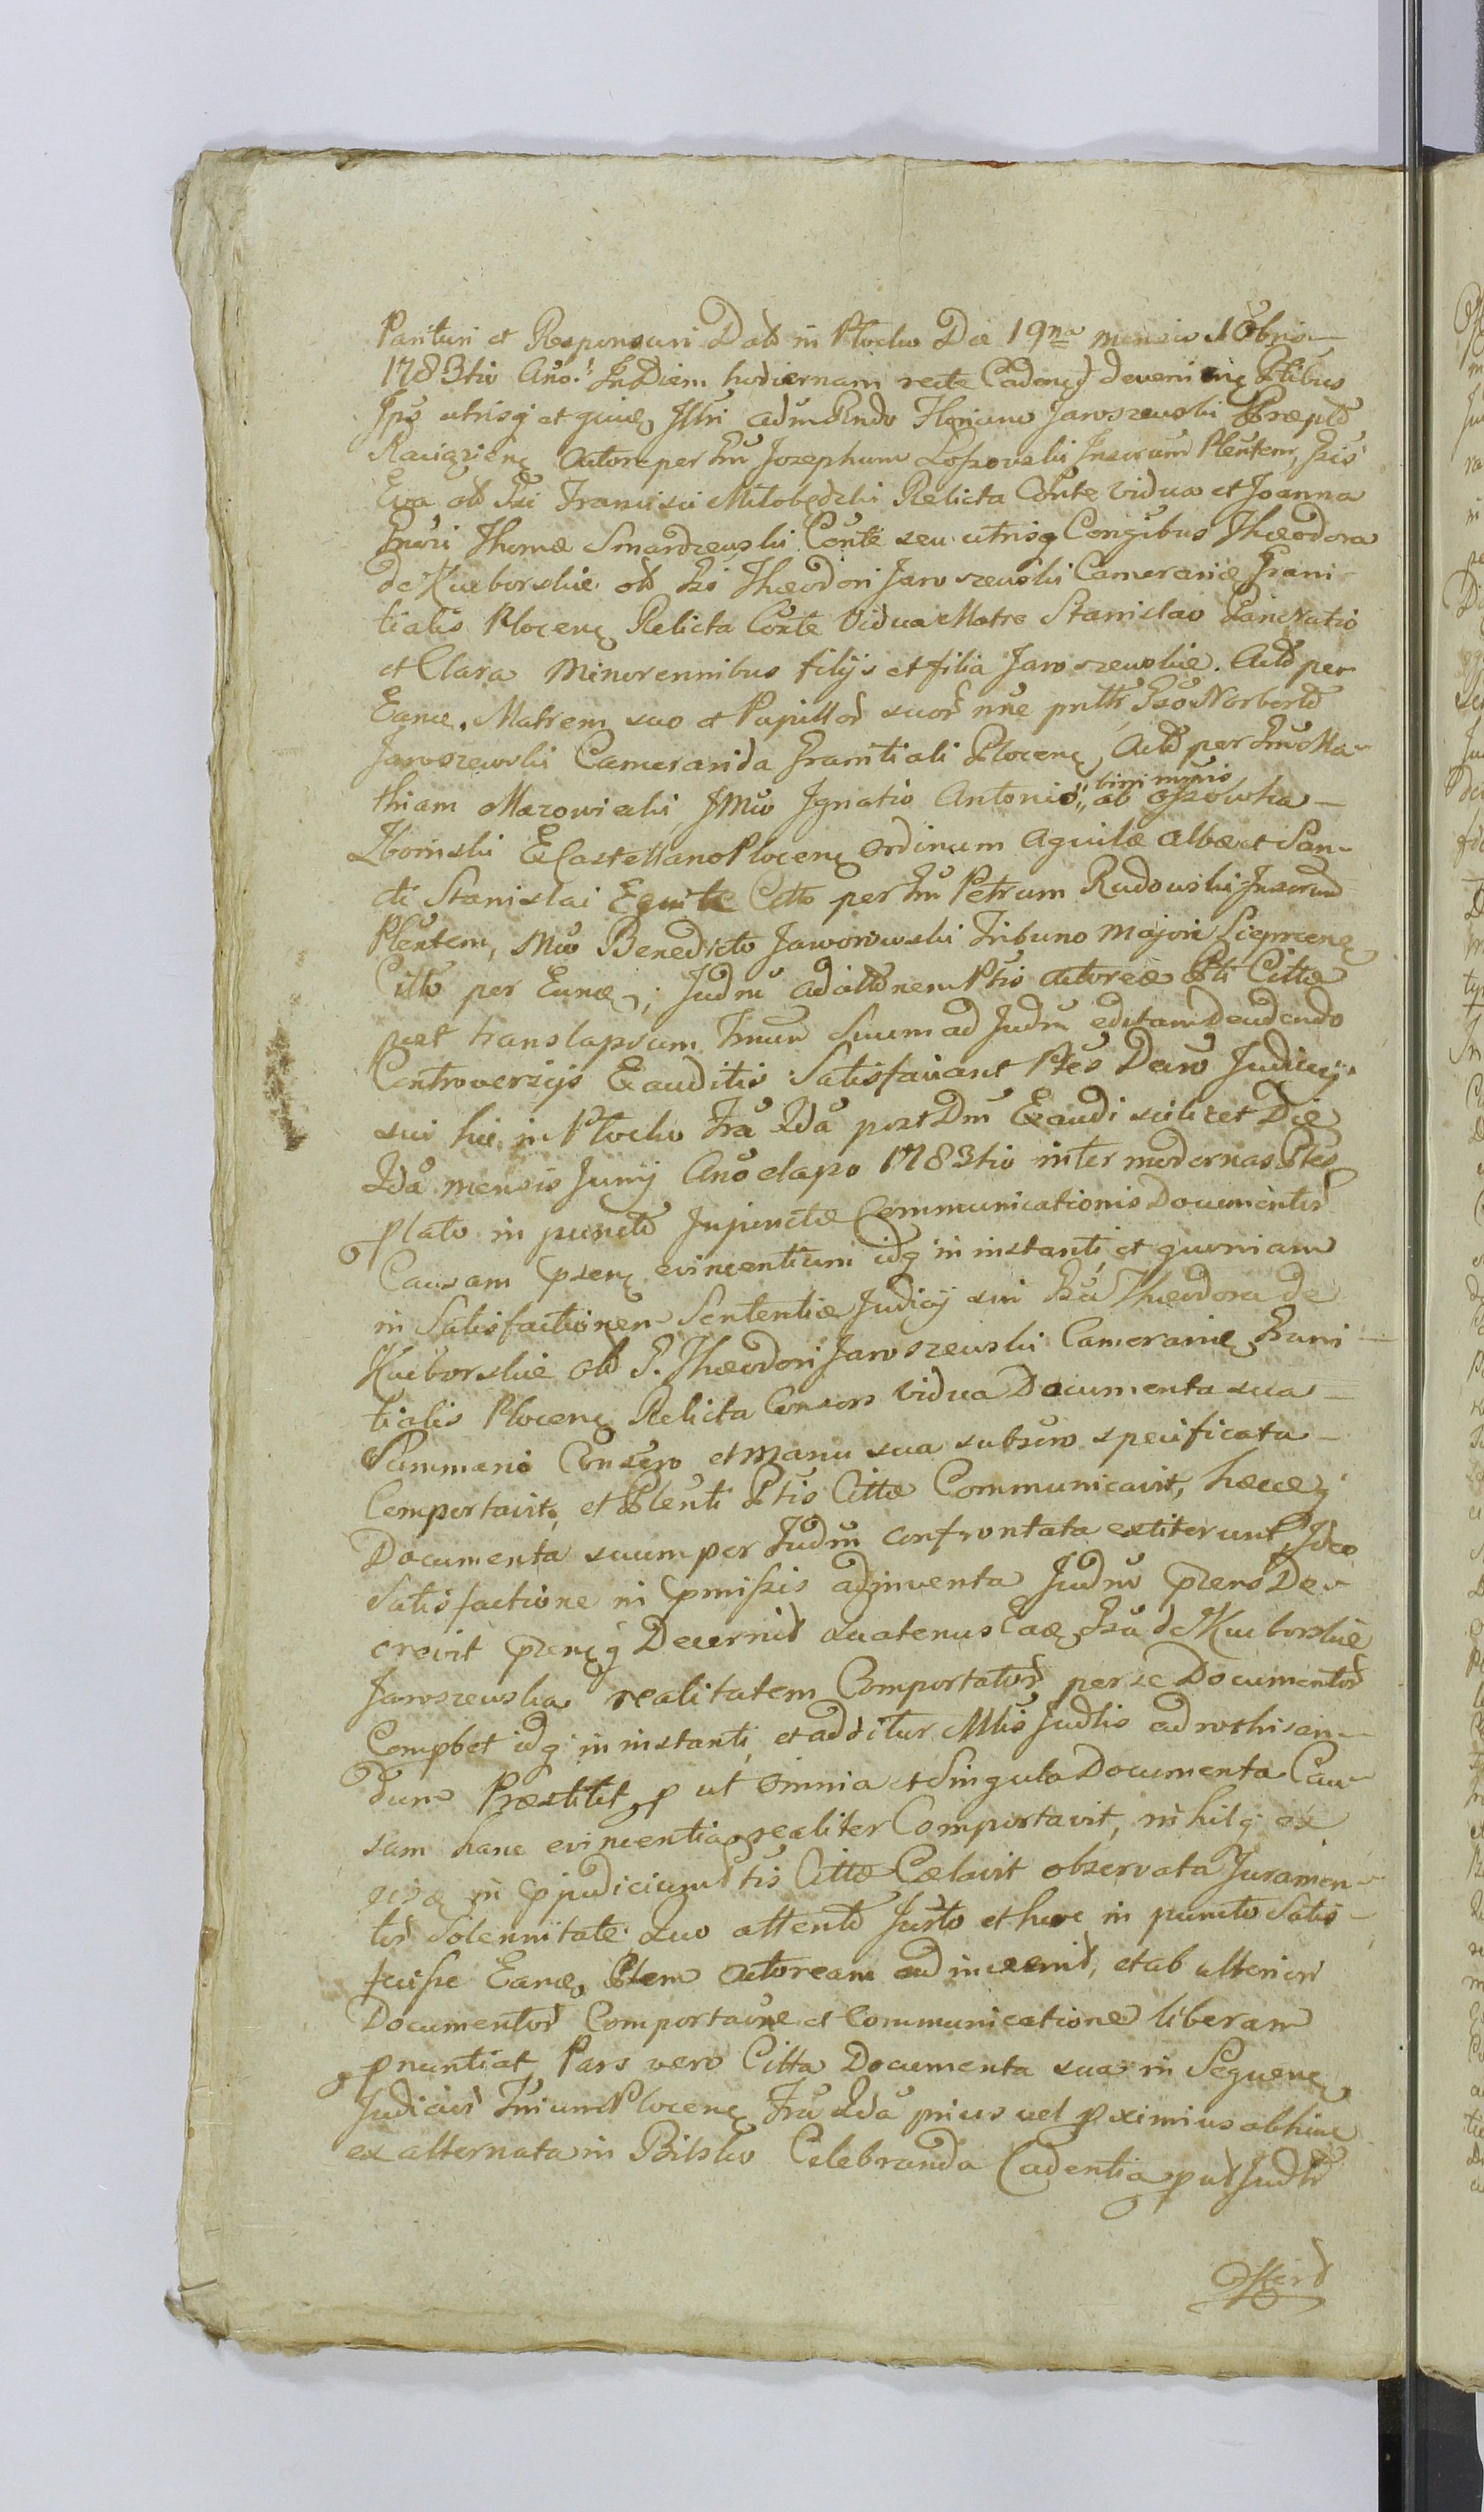 Parituri et Responsuri Datt in Plocko Die 19na mensis 10bris
1783tio Ano. In Diem hodiernam recte Caden deveni Ptibus
Ips utrisq et quidē Illri adm Rndo Floriano Jaroszewski Præpto
Raciązien Actore per Gnū Josephum Lossowski Insrum Plentem, Gsis
Eva olō Gsi Francisci Miłobędzki Relicta Conte vidua et Joanna
Gnōsi Thomæ Smardzewski Conte seu utrisq Congibus Theodora
de Kuczborskie olō Gsi Theodori Jaroszewski Camerariæ Grani-
tialis Plocen Relicta Conte Vidua Matre Stanislao Pancratio
et Clara Minorennibus filijs et filia Jaroszewskie. Actō per
Eand. Matrem suo et Pupillor suor nne pntte Gso Norberto
Jaroszewski Camerarida Granitiali Plocen, Actō per Gnū Ma-
thiam Mazowiecki, JMco Ignatio Antonio bini mnis ab Ossowka
Zboinski ECastellano Plocen Ordinum Aquilæ albæ et San-
cti Stanislai Equite Citto per Gnū Petrum Rudowski Insrum
Plentem, Mco Benedicto Jaworowski Tribuno Majori Sieprcen
Citto per Eund; Judm ad attnem Ptis actoreæ Pti Cittæ
post translapsum Tmum Suum ad Judm editam Deudendo
Controversijs Exauditis Satisfaciant Ptes Decro Judicij
sui hic in Plocko Fra 2da post Dm Exaudi scilicet Die
2da mensis Junij Ano elapo 1783tio inter modernas Ptes
plato in puncto Injunctæ Communicationis Documentor
Causam psen evincentium idq in instanti et quoniam
in Satisfactionem Sententiæ Judicij sui Gsa Theodora de
Kuczborskie olō G. Theodori Jaroszewski Camerarie Grani
tialis Plocen Relicta Consors vidua Documenta sua
Summario Consgno et Manu sua subscro specificata
Comportavit, et Plenti Ptis Cittæ Communicavit, hæcq
Documenta suum per Judm confrontata extiterunt, Ideo
Satisfactione in pmissis adinventa Judm psens De-
crevit psenq Decernit Quatenus Ead Gsa de Kuczborskie
Jaroszewska realitatem Comportator per se Documentor
Compbet idq in instanti, et additur Mtis Judtis ad rothisan-
dum Præstitit p ut omnia et Singula Documenta Cau-
sam hanc evincentia realiter Comportavit, nihilq ex
in pjudicium Ptis Cittæ Cælavit observata Juramen-
tor Solennitate. Quo attento Jusrto et huic in puncto Satis-
fecisse Eand Ptem Actoream adinvenit, et ab ulteriori
Documentor Comportaõne et Communicatione liberam
pnuntiat. Pars vero Citta Documenta sua in Sequen
Judicior Tnium Plocen Fra 2da prius vel pximius abhinc
ex alternata in Bilsko Celebranda Cadentia put Judtr